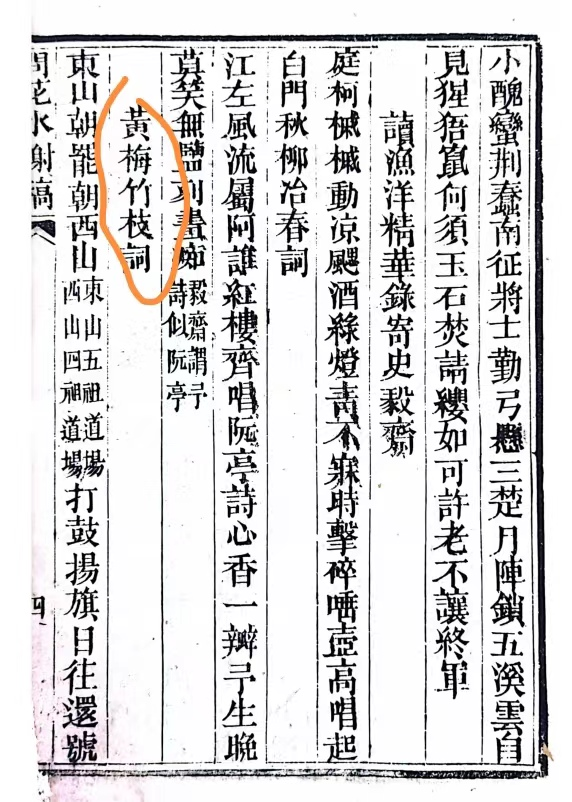 小醜蠻荆蠢南征將士勤弓懸三楚月陣鎖五溪雲自
見猩猺竄何須玉石焚請纓如可許老不讓終軍
讀漁洋精華錄寄史毅齋
庭柯槭槭動凉颸酒綠燈青不寐時擊碎唾壺高唱起
白門秋柳冶春詞
江左風流屬阿誰紅樓齊唱阮亭詩心香一瓣予生晚
莫笑無鹽刻畫痴毅齋謂予詩似阮亭
黃梅竹枝詞
東山朝罷朝西山東山五祖道塲西山四祖道塲打鼓揚旗日往還號
問花水榭稿
四